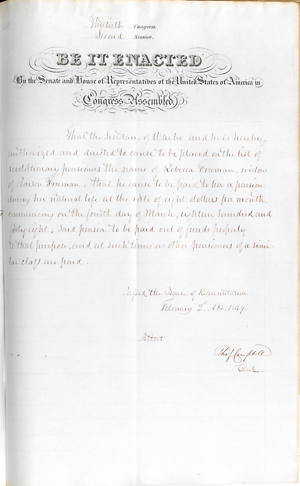 Thirtieth Congress
Second Session
BE IT ENACTED
By the Senate and House of Representatives of the United States of America in
Congress Assembled,
That the Secretary of War be and he is hereby
authorized and directed to cause to be placed on the list of
revolutionary pensioners the name of Rebecca Freeman, widow
of Pearson Freeman, that he cause to be paid to her a pension
during her natural life at the rate of eight dollars per month
commencing on the fourth day of March, eighteen hundred and
forty eight; said pension to be paid out of funds properly
to that purpose, and at such times as other pensioners of a simi
lar class are paid.
Passed the House of Representatives
February 2d, AD. 1849.
Attest
Campbell
Clerk